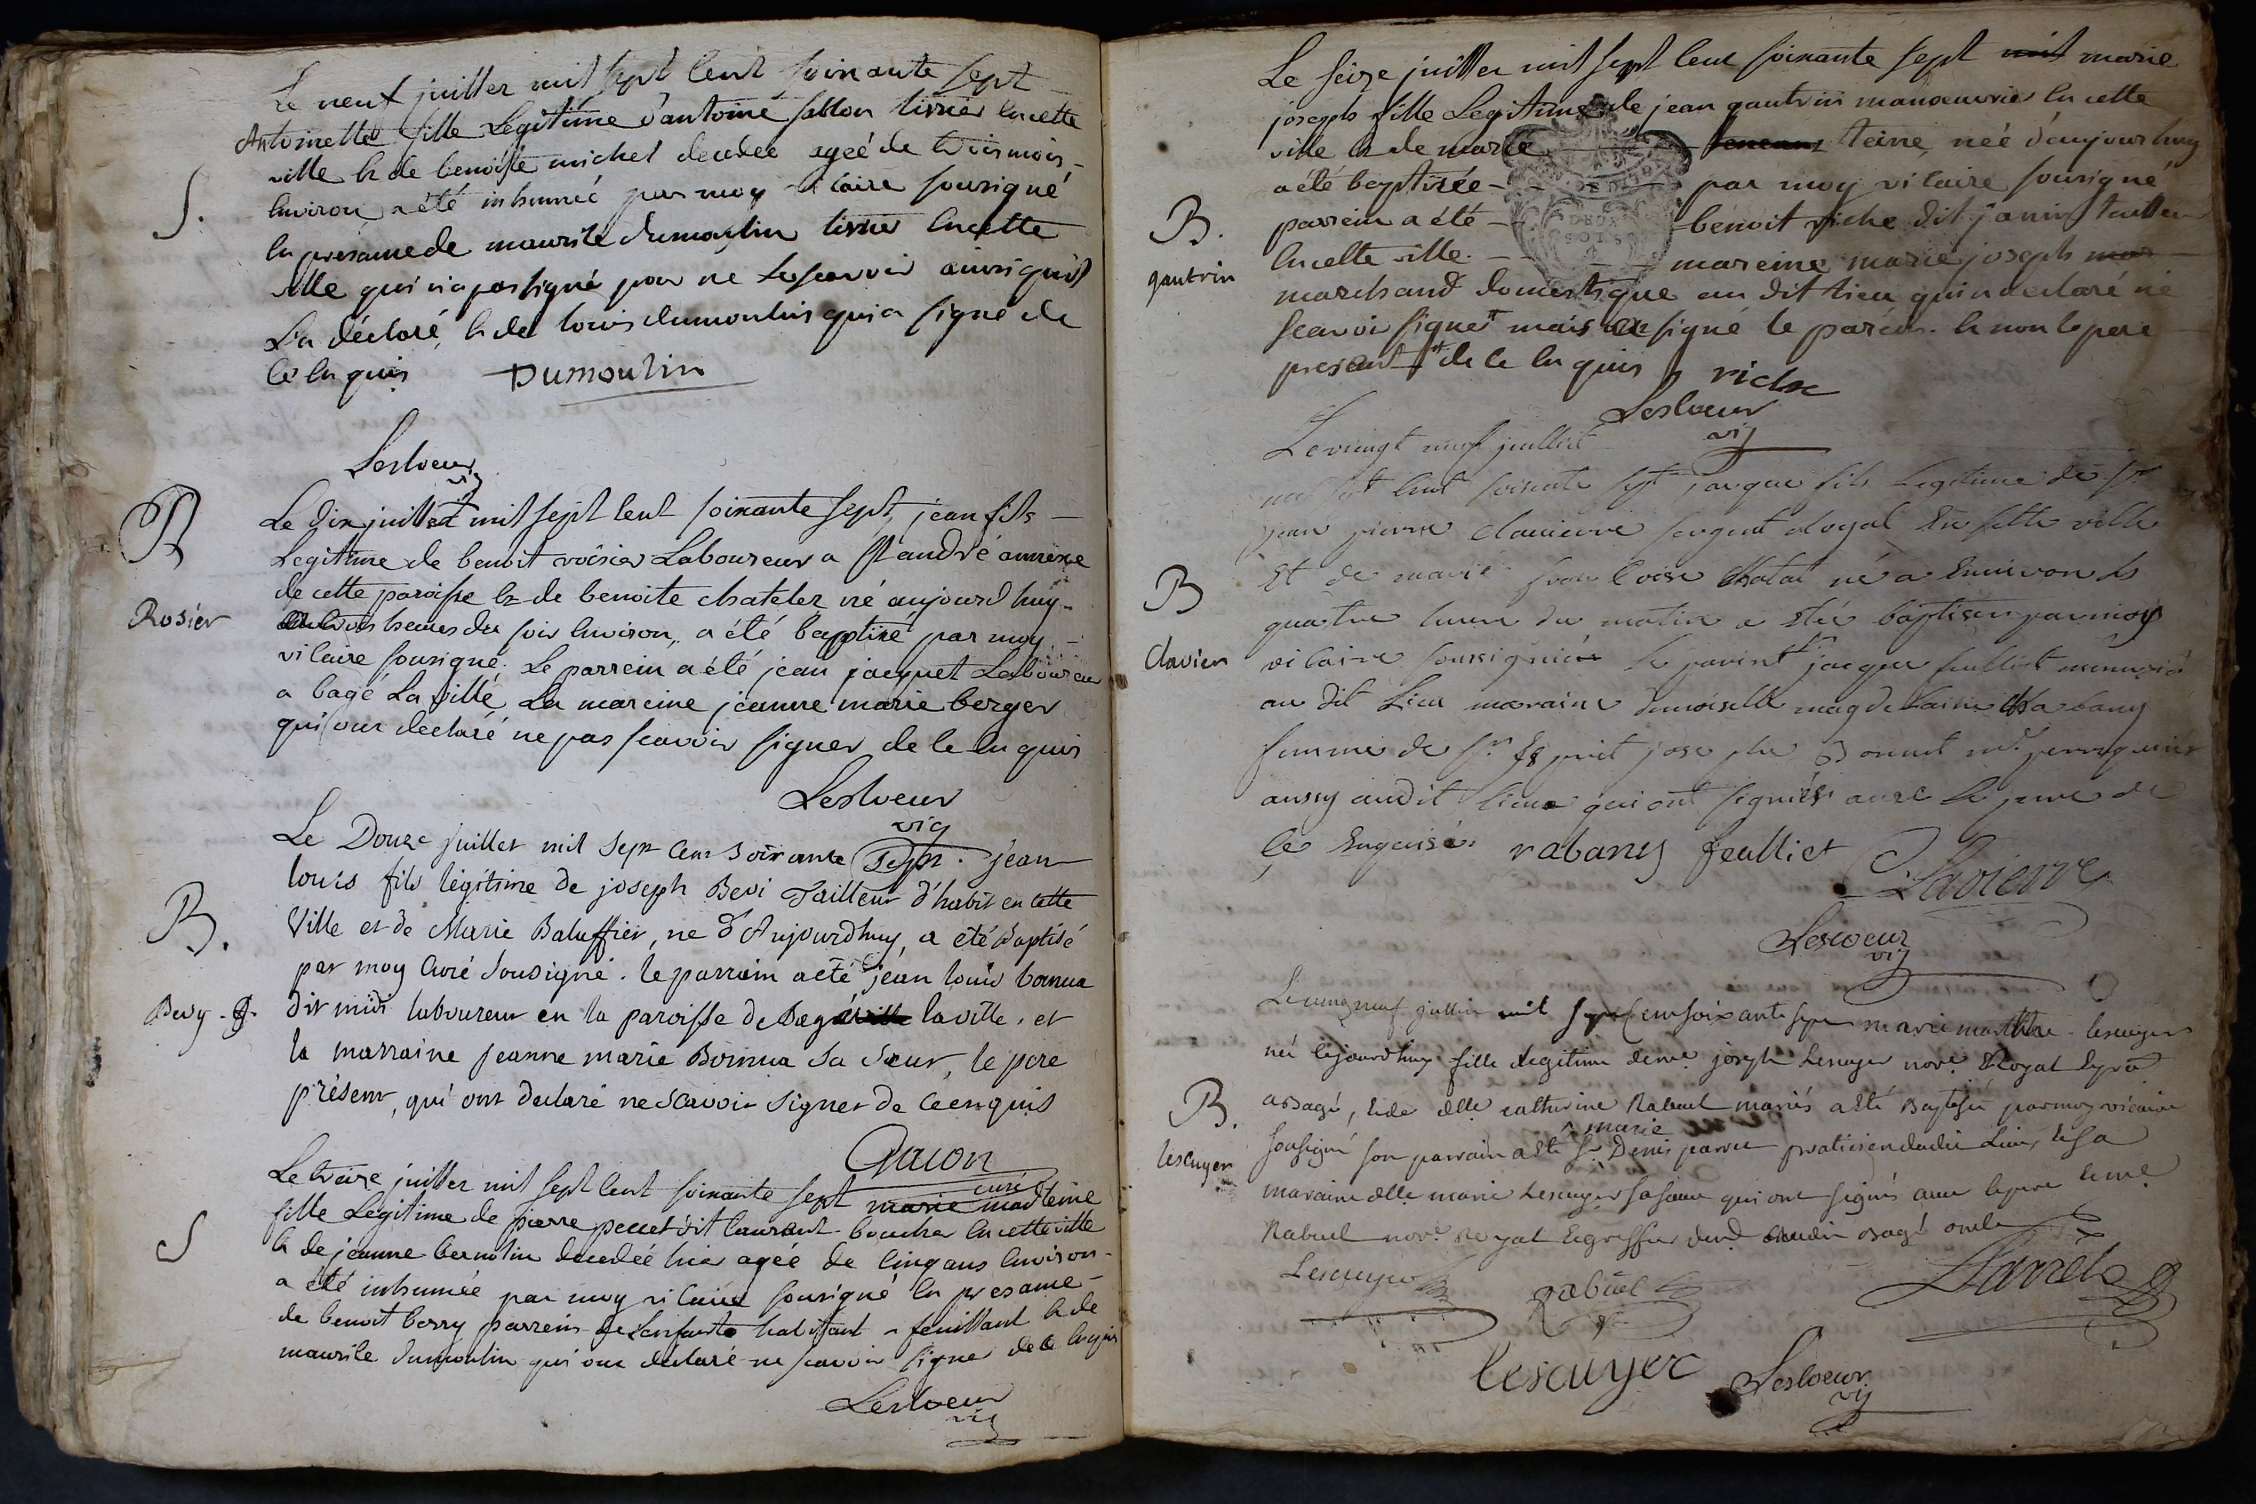 Le neuf juillet mil sept cent soixante sept
Antoinette fille Legitime d'antoine sallon tissier en cette
ville & de benoiste michel decedee agée de trois mois
S.
environ a été inhumée par moy vicaire sousigné
en presance de maurile dumoulin tissier en cette
ville qui n'a pas signé pour ne le scavoir ainsi qu'il
L'a déclaré, & de louis dumoulin qui a signé de
ce enquis Dumoulin
Lescoeur
vic
B
Rosier
Le dix juillet mil sept cent soixante sept, jean fils
Legitime de benoit rosier Laboureur a St andré annexe
de cette paroisse & de benoite chatelet né aujourd huy
heures du soir environ, a été baptisé par moy
vicaire sousigné. Le parrein a été jean jacquet Laboureur
a bagé La ville La mareine jeanne marie berger
qui ont declaré ne pas scavoir signer de ce enquis
Lescoeur
vic
Le Douze juillet mil Sept Cent Soixante Sept. jean
louis fils légitime de joseph Bevi Tailleur d'habit en cette
B.
Ville et de Marie Baluffier, né d'Aujourdhuy, a été Baptisé
par moy Curé Sousigné. le parrain a été jean louis bonna
Bevy
dit midi laboureur en la paroisse de Bagé la ville, et
la marraine Jeanne marie Bonna Sa Sœur, le pere
présent, qui ont declaré ne Scavoir Signer de Ce enquis
Gacon
curé
Le treize juillet mil sept cent soixante sept marie
fille Legitime de pierre pecuet dit laurent boucher en cette ville
S
& de jeanne bernolin decedée hier agée de cinq ans environ
a été inhumée par moy vicaire sousigné en presance
de benoit berry parrein de Lenfant habitant a feuillant & de
maurile dumoulin qui ont declaré ne scavoir signer de ce enquis
Lescoeur
vic
Le seize juillet mil sept cent soixante sept marie
joseph fille Legitime de jean gautrin manoeuvrier en cette
ville & de marie teine, née d'aujourhuy
a été baptisée par moy vicaire sousigné
B.
gautrin
parrein a été benoit riche dit janin tailleur
en cette ville. mareine marie joseph
marchand domestique au dit lieu qui a declaré ne
scavoir signer mais a signé le parein. & non le pere
present de ce enquis riche
Lescoeur
vic
Le vingt neuf juillet
mil sept cent soixante sept jacque fils Legitime de sr
jean pierre clavierre sergent royal En sette ville
B
Et de marie francoise chatal né a Environ les
quatre heure du matin a été baptiser par moy
clavier
vicaire soussigné Le parint jacque feulliet
au dit Lieu maraine demoiselle magdelaine rabany
femme de sr Esprit joseph Bonnet md perruquier
aussy audit lieu qui ont signés avec Le pere de
ce Enquisé. rabany feulliet Clavierre
Lescoeur
vic
Le vingt neuf juillet mil sept cent soixante sept marie marthe lescuyer
née cejourdhuy fille legitime de me joseph Lescuyer nore Royal
B.
a Bagé, & de delle catherine Rabuel mariés a été Baptisée par moy vicaire
lescuyer
sousigné son parrain a été sr Denis marie parret praticien dudit Lieu, & sa
maraine delle marie Lescuyer sa soeur qui ont signés avec le pere & me
Rabuel nore Royal & greffier dud Bagé oncle
Lescuyer Rabuel Parret
lescuyer Lescoeur
vic